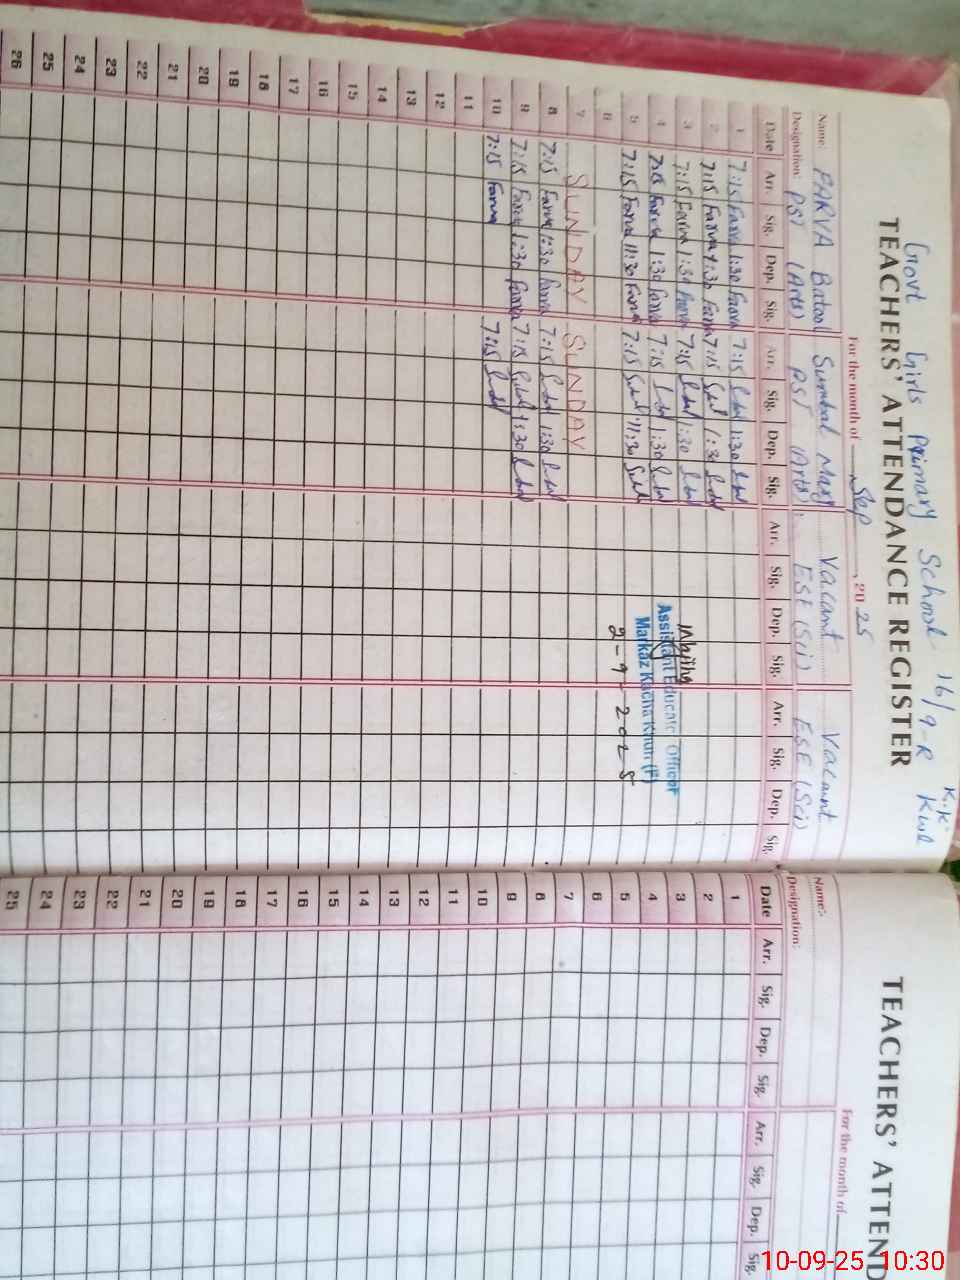 Govt Girls Primary School 16/9-R K.K. Kwl
TEACHERS' ATTENDANCE REGISTER
For the month of Sep, 2025
Name: FARVA Batool Sumbal Mary Vacant Vacant
Designation: PST (Arts) PST (Arts) ESE (Sci) ESE (Sci)
Date Arr. Sig. Dep. Sig. Arr. Sig. Dep. Sig. Arr. Sig. Dep. Sig. Arr. Sig. Dep. Sig.
1 7:15 Farva 1:30 Farva 7:15 1:30
2 7:15 Farva 1:30 Farva 7:15 1:30
3 7:15 Farva 1:30 Farva 7:15 1:30
4 7:15 Farva 1:30 Farva 7:15 1:30
5 7:15 Farva 11:30 Farva 7:15 11:30
6
7 SUNDAY SUNDAY
8 7:15 Farva 1:30 Farva 7:15 1:30
9 7:15 Farva 1:30 Farva 7:15 1:30
10 7:15 Farva 7:15
11
12
13
14
15
16
17
18
19
20
21
22
23
24
25
26
Assistant Education Officer
Markaz Kacha Khuh (F)
2-9-2025
TEACHERS' ATTEND
For the month of
Name:
Designation:
Date Arr. Sig. Dep. Sig. Arr. Sig. Dep. Sig.
1
2
3
4
5
6
7
8
9
10
11
12
13
14
15
16
17
18
19
20
21
22
23
24
25
10-09-25 10:30